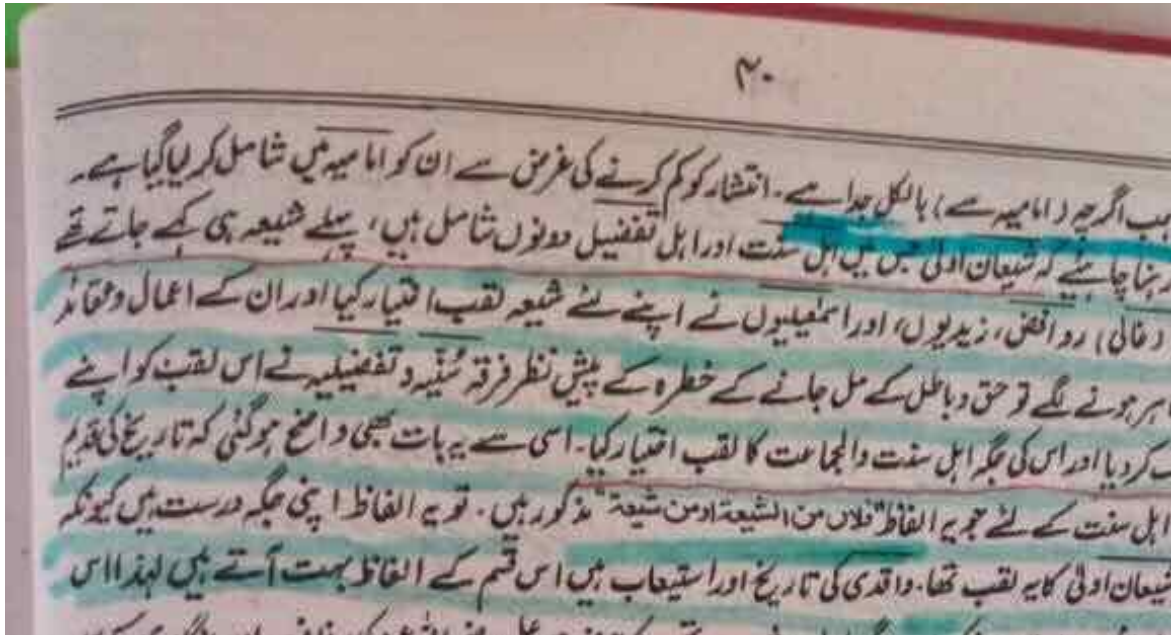 ۴۰
اگرچہ (امامیہ سے) بالکل جدا ہے۔ انتشار کو کم کرنے کی غرض سے ان کو امامیہ میں شامل کر لیا گیا ہے۔
چاہئیے کہ شیعان اولیٰ جس میں اہل سنت اور اہل تفضیل دونوں شامل ہیں، پہلے شیعہ ہی کہے جاتے تھے
(غالی) روافض، زیدیوں، اور اسمٰعیلیوں نے اپنے لئے شیعہ لقب اختیار کیا اور ان کے اعمال و عقائد
ہونے لگے تو حق و باطل کے مل جانے کے خطرہ کے پیش نظر فرقہ سُنیہ و تفضیلیہ نے اس لقب کو اپنے
کر دیا اور اس کی جگہ اہل سنت والجماعت کا لقب اختیار کیا۔ اسی سے یہ بات بھی واضح ہوگئی کہ تاریخ کی قدیم
اہل سنت کے لئے جو یہ الفاظ "فلاں من الشیعۃ اومن شیعۃ" مذکور ہیں۔ تو یہ الفاظ اپنی جگہ درست ہیں کیونکہ
شیعان اولیٰ کا یہ لقب تھا۔ واقدی کی تاریخ اور استیعاب میں اس قسم کے الفاظ بہت آتے ہیں لہذا اس